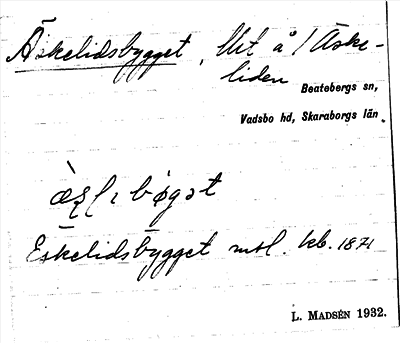 Äskelidsbygget, Ut. å / Äske-
liden
Beatebergs sn,
Vadsbo hd, Skaraborgs län.
bøgət
Eskelidsbygget mtl. kb. 1871
L. MADSÉN 1932.